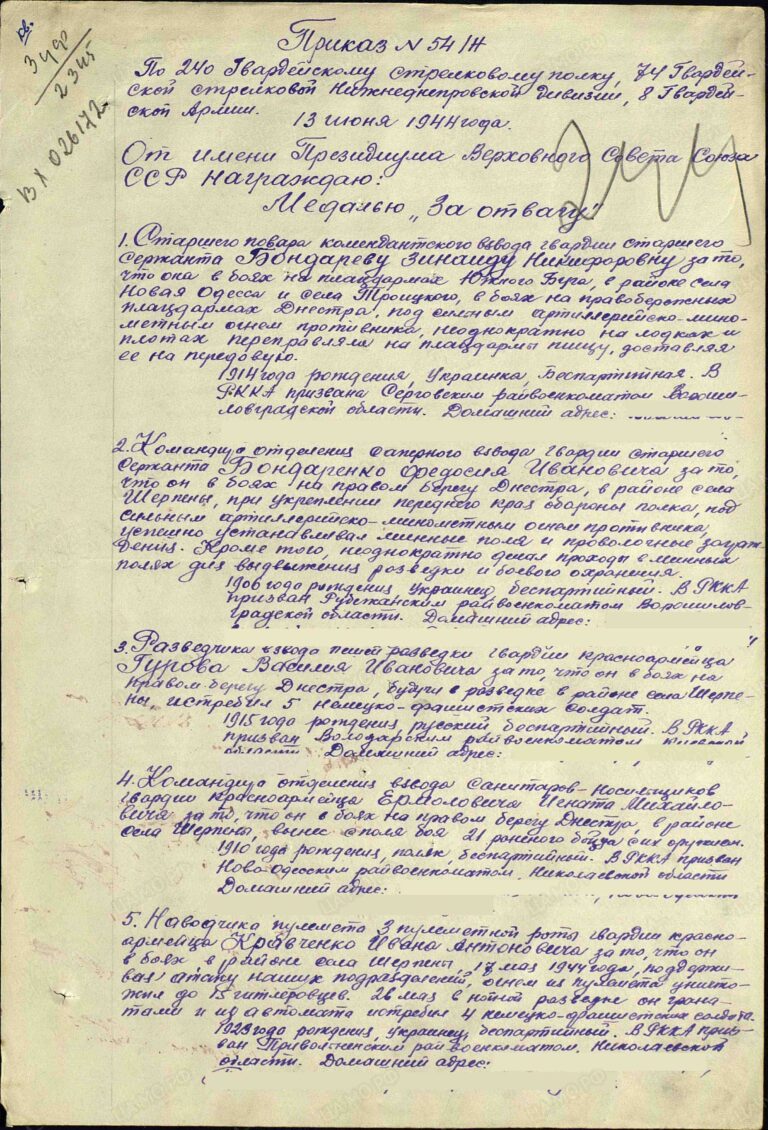 кв.
3 удр
2345
ВХ 026172
Приказ N 54/Н
По 240 Гвардейскому стрелковому полку, 74 Гвардей-
ской стрелковой Нижнеднепровской дивизии, 8 Гвардей-
ской Армии.
13 июня 1944 года.
От имени Президиума Верховного Совета Союза
ССР награждаю:
Медалью „За отвагу"
1. Старшего повара комендантского взвода гвардии старшего
сержанта Бондареву Зинаиду Никифоровну за то,
что она в боях на плацдармах Южного Буга, в районе села
Новая Одесса и села Троицкого, в боях на правобережных
плацдармах Днестра, под сильным артиллерийско-мино-
метным огнем противника, неоднократно на лодках и
плотах переправляла на плацдармы пищу, доставляя
ее на передовую.
1914 года рождения, Украинка, Беспартийная. В
РККА призвана Серговским райвоенкоматом Вороши-
ловградской области. Домашний адрес:
2. Командира отделения саперного взвода гвардии старшего
сержанта Бондаренко Федосия Ивановича за то,
что он в боях на правом берегу Днестра, в районе села
Шерпены, при укреплении переднего края обороны полка, под
сильным артиллерийско-минометным огнем противника,
успешно устанавливал минные поля и проволочные заграж-
дения. Кроме того, неоднократно делал проходы в минных
полях для выдвижения разведки и боевого охранения.
1906 года рождения, украинец, беспартийный. В РККА
призван Рубежанским райвоенкоматом Ворошилов-
градской области. Домашний адрес:
3. Разведчика взвода пешей разведки гвардии красноармейца
Гурова Василия Ивановича за то, что он в боях на
правом берегу Днестра, будучи в разведке в районе села Шерпе-
ны, истребил 5 немецко-фашистских солдат.
1915 года рождения, русский, беспартийный. В РККА
призван Володарским райвоенкоматом Киевской
области. Домашний адрес:
4. Командира отделения взвода санитаров-носильщиков
гвардии красноармейца Ермоловича Игната Михайло-
вича за то, что он в боях на правом берегу Днестра, в районе
села Шерпены, вынес с поля боя 21 раненого бойца с их оружием.
1910 года рождения, поляк, беспартийный. В РККА призван
Ново-Одесским райвоенкоматом, Николаевской области
Домашний адрес:
5. Наводчика пулемета 3 пулеметной роты гвардии красно-
армейца Кравченко Ивана Антоновича за то, что он
в боях в районе села Шерпены, 18 мая 1944 года, поддержи-
вая атаку наших подразделений, огнем из пулемета уничто-
жил до 15 гитлеровцев. 26 мая в ночной разведке он грана-
тами и из автомата истребил 4 немецко-фашистских солдата.
1923 года рождения, украинец, беспартийный. В РККА приз-
ван Привольненским райвоенкоматом, Николаевской
области. Домашний адрес: